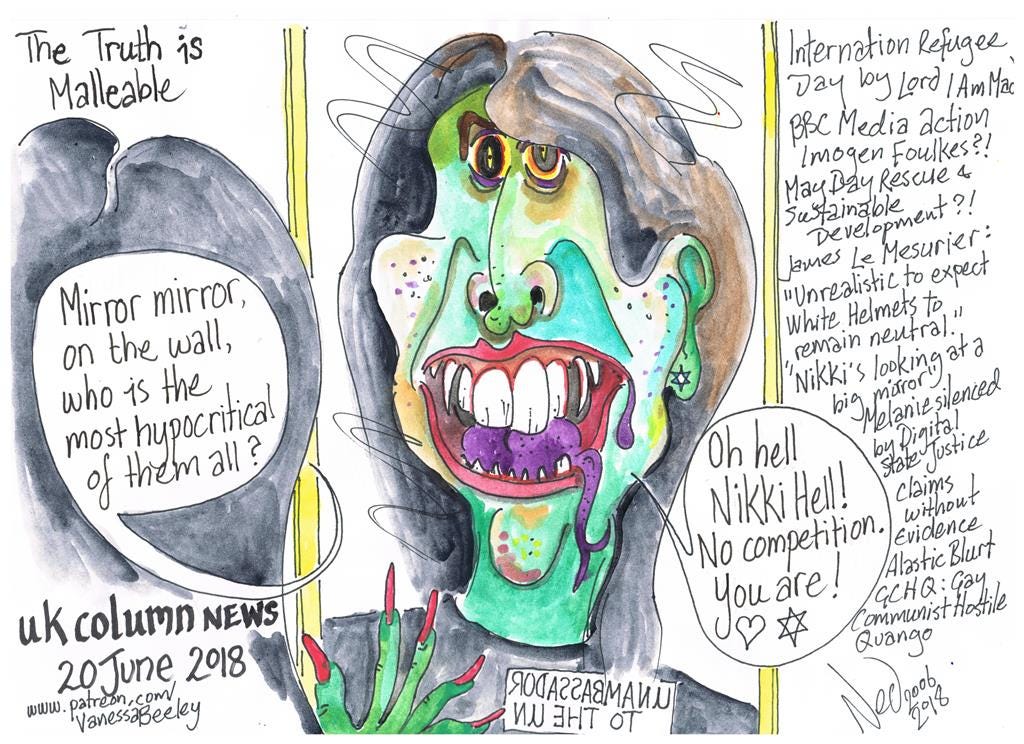 The Truth is
Malleable
Mirror mirror,
on the wall,
who is the
most hypocritical
of them all?
UK COLUMN NEWS
20 June 2018
www.patreon.com/
VanessaBeeley
UNAMBASSADOR
TO THE UN
Oh hell
Nikki Hell!
No competition.
You are!
Internation Refugee
Day by Lord I Am Mac
BBC Media action
Imogen Foulkes?!
May Day Rescue &
Sustainable
Development?!
James Le Mesurier:
"Unrealistic to expect
White Helmets to
remain neutral."
"Nikki's looking at a
big mirror"
Melanie silenced
by Digital
State Justice
claims
without
Evidence
Alastic Blurt
GCHQ: Gay
Communist Hostile
Quango
2006
2018